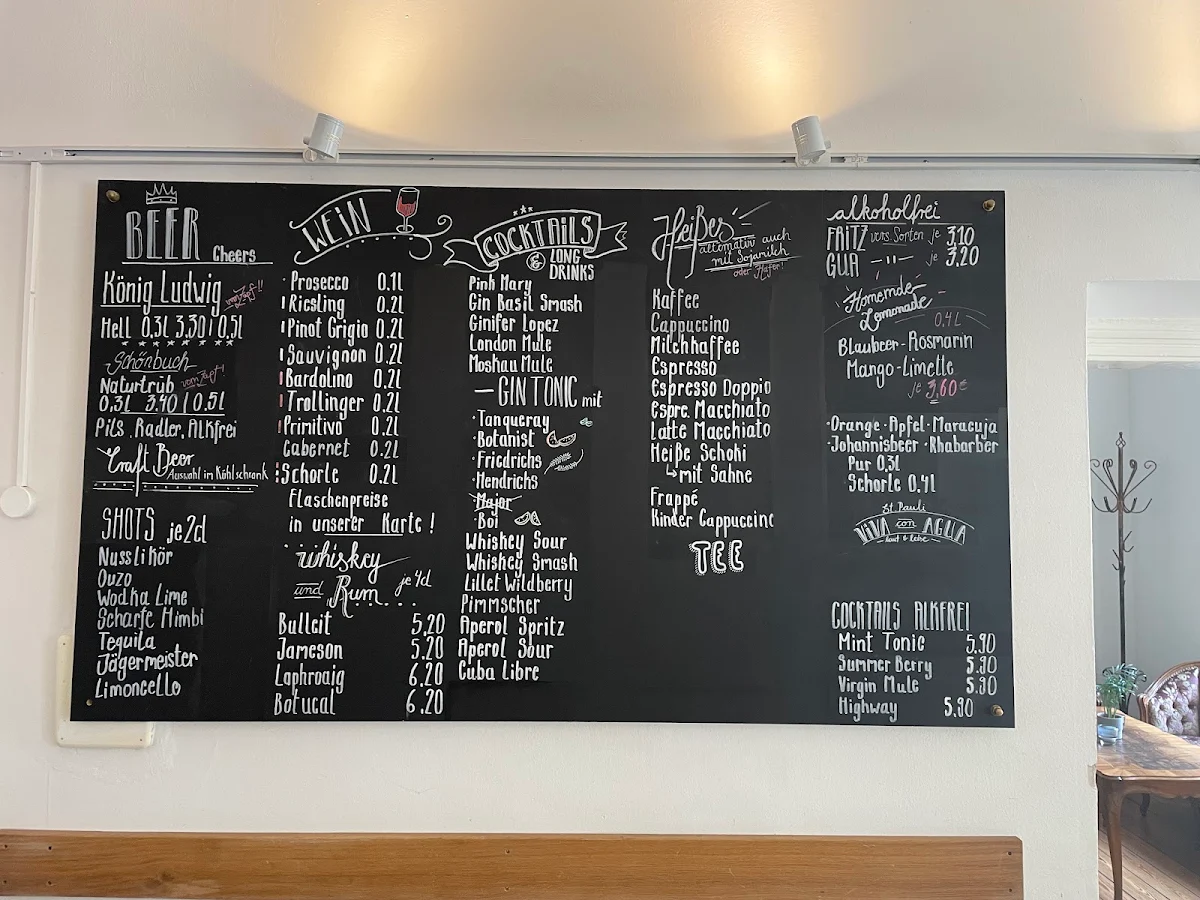 BEER
Cheers
König Ludwig
vom Zapf!!
Hell 0,3l 3,30 / 0,5l
Schönbuch
Naturtrüb vom Zapf!
0,3l 3,40 / 0,5l
Pils, Radler, Alkfrei
Craft Beer
Auswahl im Kühlschrank
SHOTS je 2cl
Nusslikör
Ouzo
Wodka Lime
Scharfe Himbi
Tequila
Jägermeister
Limoncello
WEIN
Prosecco 0.1l
Riesling 0.2l
Pinot Grigio 0.2l
Sauvignon 0.2l
Bardolino 0.2l
Trollinger 0.2l
Primitivo 0.2l
Cabernet 0.2l
Schorle 0.2l
Flaschenpreise
in unserer Karte!
Whiskey
und Rum je 4cl
Bulleit 5,20
Jameson 5,20
Laphroaig 6,20
Botucal 6,20
COCKTAILS
& LONG
DRINKS
Pink Mary
Gin Basil Smash
Ginifer Lopez
London Mule
Moskau Mule
— GIN TONIC mit
· Tanqueray
· Botanist
· Friedrichs
· Hendrichs
· Major
· Boi
Whiskey Sour
Whiskey Smash
Lillet Wildberry
Pimmscher
Aperol Spritz
Aperol Sour
Cuba Libre
Heißes
alternativ auch
mit Sojamilch
oder Hafer!
Kaffee
Cappuccino
Milchkaffee
Espresso
Espresso Doppio
Espr. Macchiato
Latte Macchiato
Heiße Schoki
↳ mit Sahne
Frappé
Kinder Cappuccino
TEE
alkoholfrei
FRITZ vers. Sorten je 3,10
GUA —"— je 3,20
Homemade
Lemonade
0,4l
Blaubeer-Rosmarin
Mango-Limette
je 3,60€
· Orange · Apfel · Maracuja
· Johannisbeer · Rhabarber
Pur 0,3l
Schorle 0,4l
St. Pauli
VIVA con AGUA
laut & leise
COCKTAILS ALKFREI
Mint Tonic 5,90
Summer Berry 5,90
Virgin Mule 5,90
Highway 5,90